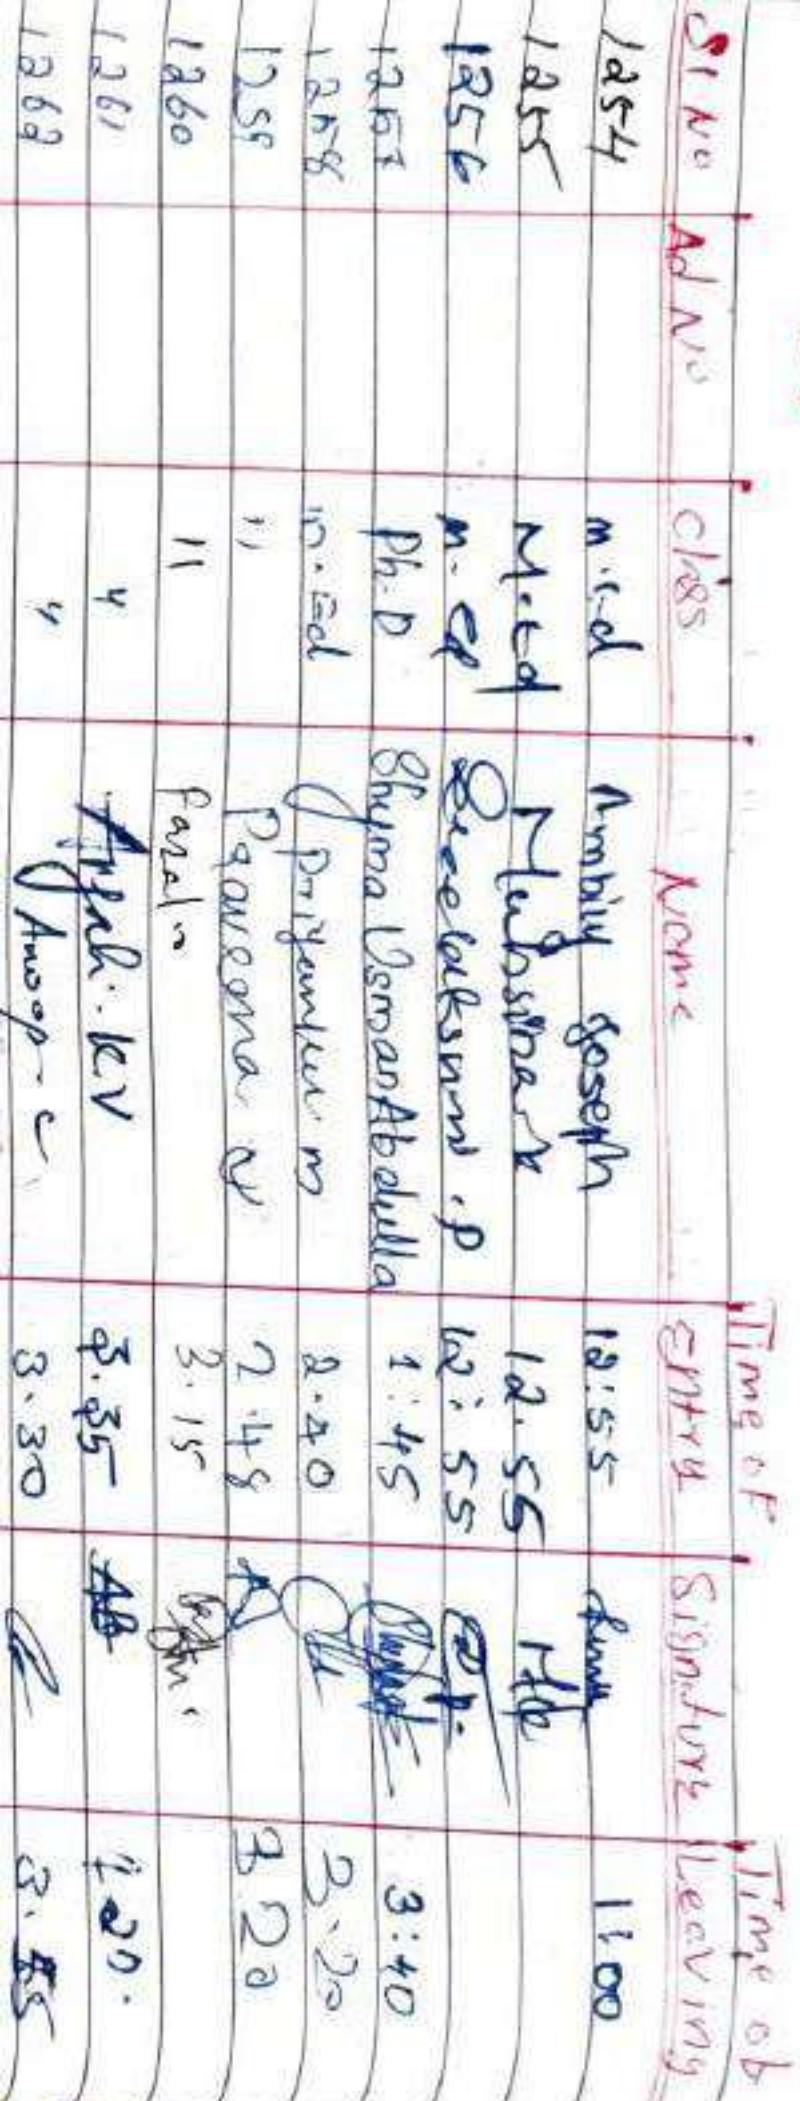 Sl No Ad No Class Name Time of Entry Signature Time of Leaving
1254 M.Ed Ambily Joseph 12:55 11:00
1255 M.Ed Muhsina K 12.55
1256 M.Ed Sreelakshmi .P 12:55
1257 Ph.D Shyma Usman Abdulla 1:45 3:40
1258 M.Ed m 2.40 3.20
1259 " Praveena 2.48 3.20
1260 " 3.15
1261 " KV 3.35
1262 " Anoop C 3.30